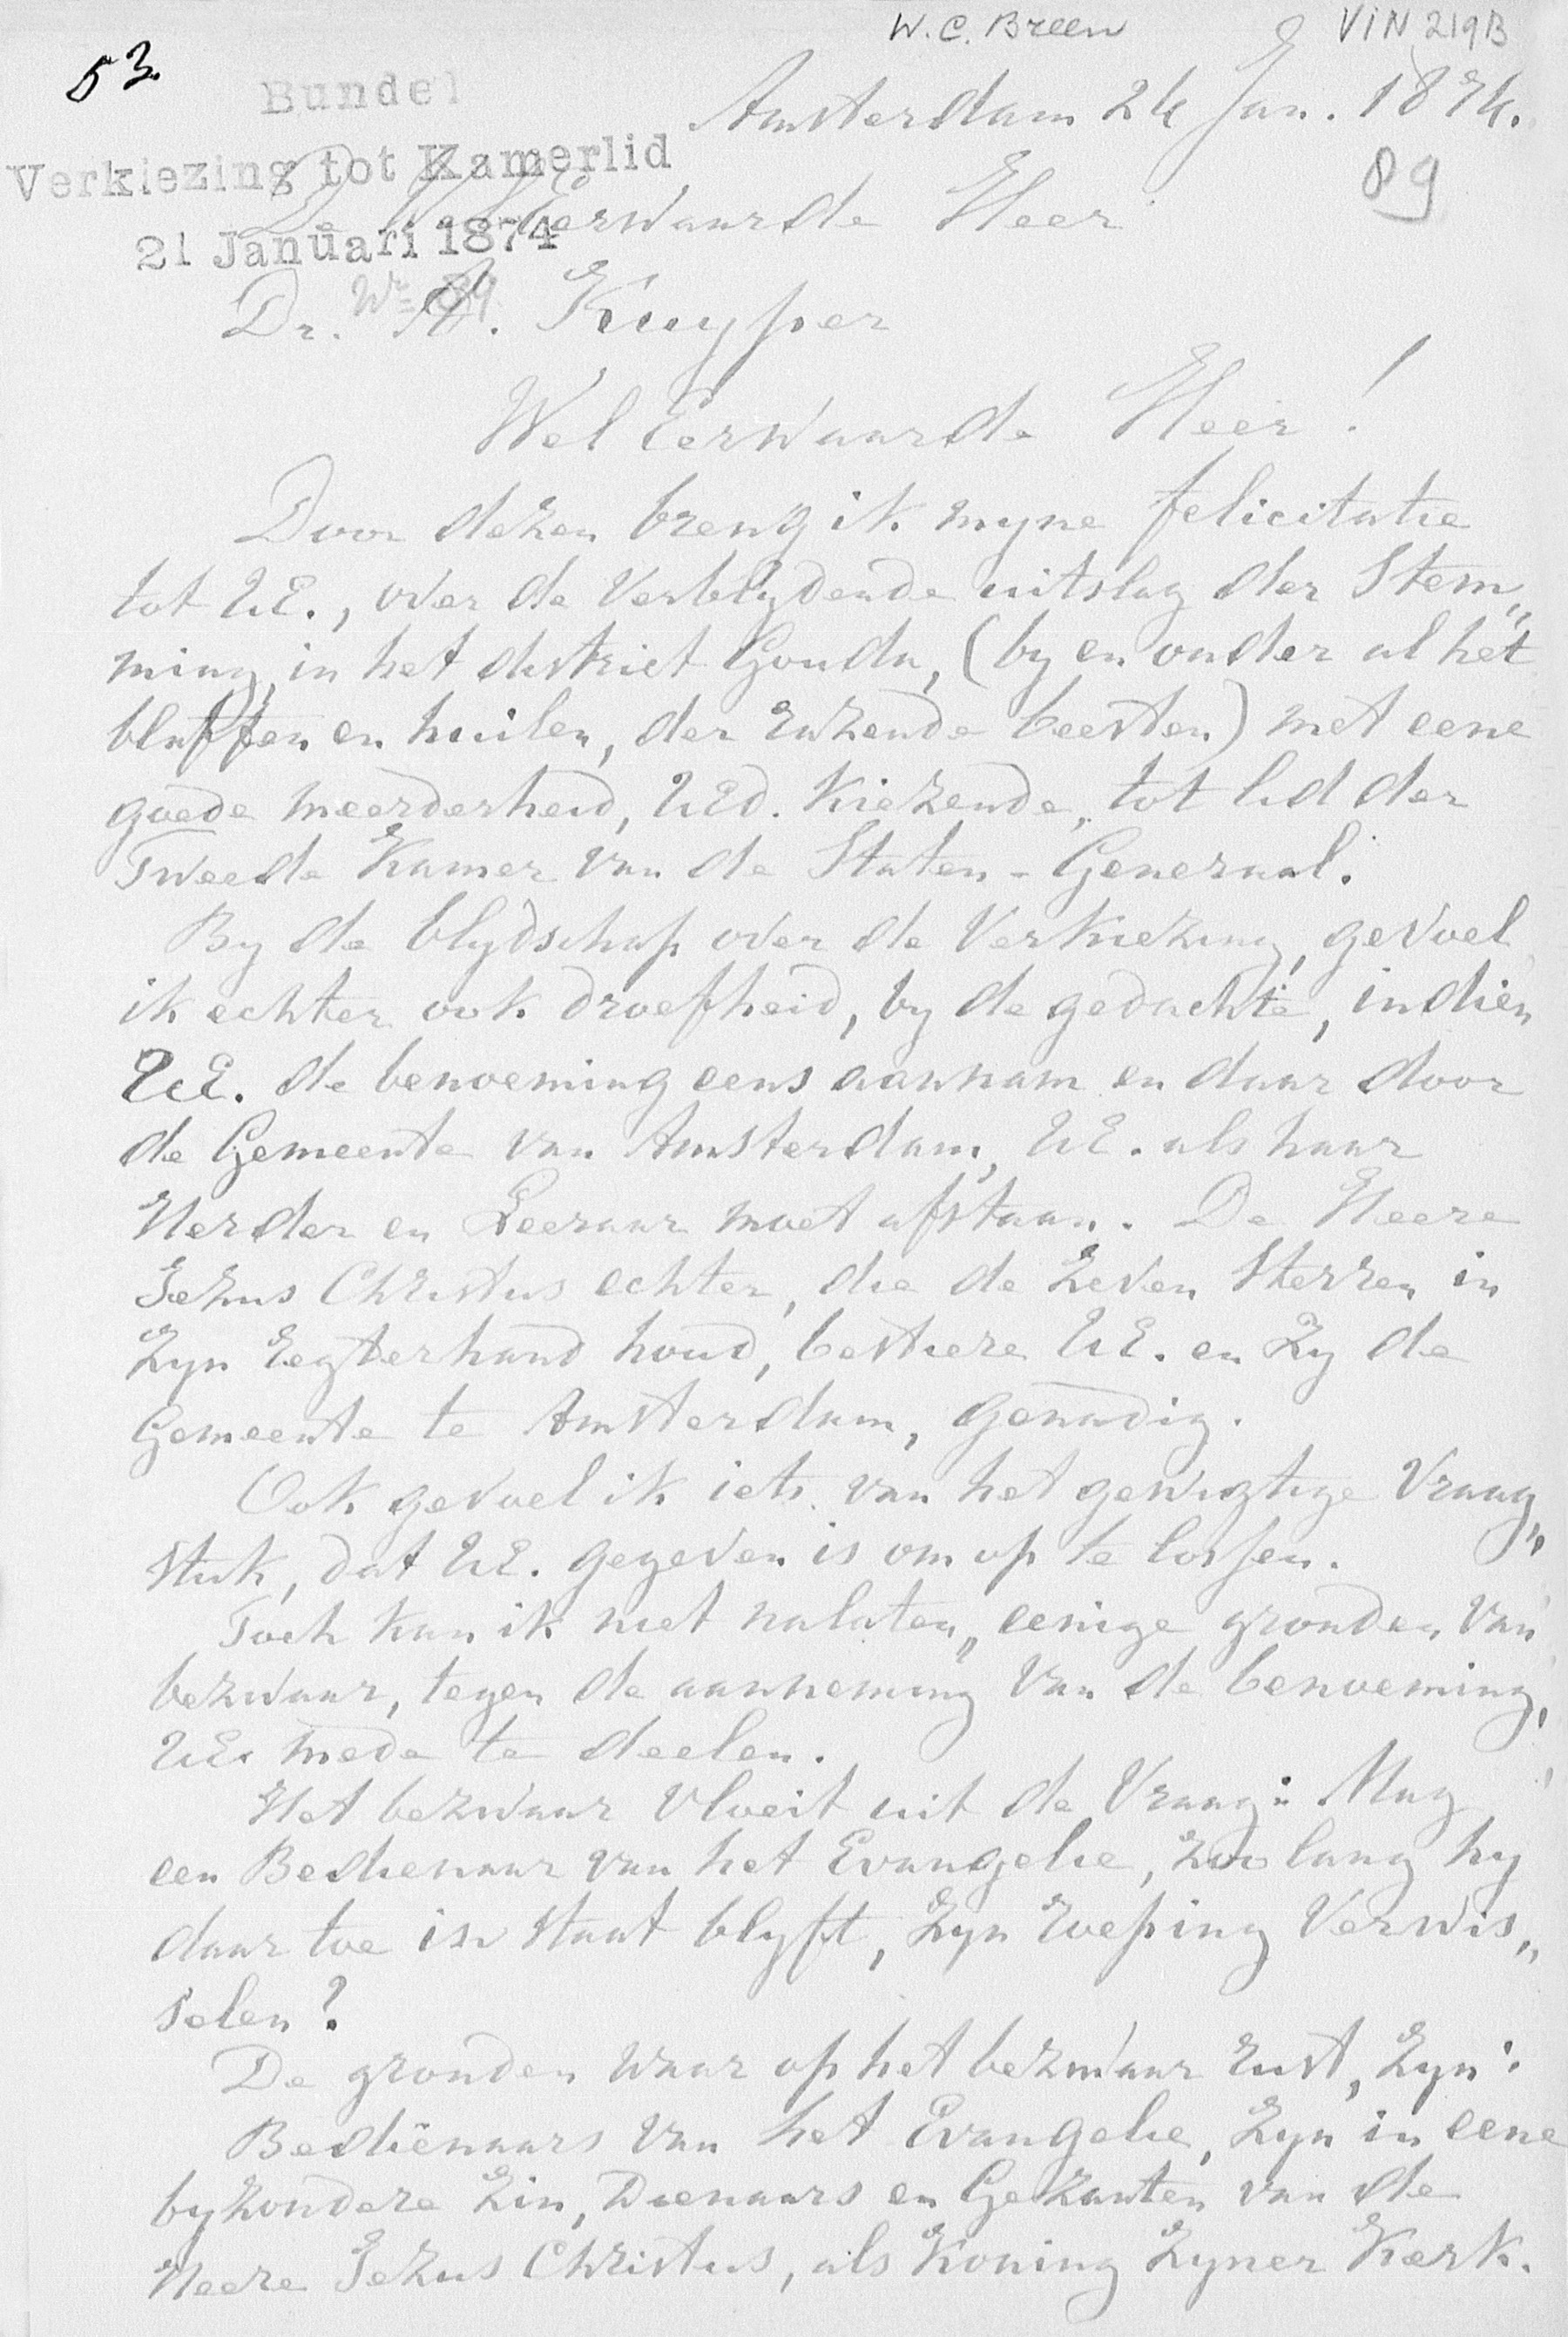 W.C. Breen VIN 219B
53
Bundel
Amsterdam 24 Jan. 1874.
Verkiezing tot Kamerlid
89
De WelEerwaarde Heer
21 Januari 1874
Dr. A. Kuyper
Wel Eerwaarde Heer!
Door dezen breng ik myne felicitatie
tot UE., over de Verblydende uitslag der Stem„
ming, in het district Gouda, (by en onder al het
blaffen en huilen, der razende beesten) met eene
goede meerderheid, UEd. Kiezende, tot lid der
Tweede Kamer van de Staten-Generaal.
By de blydschap over de Verkiezing, gevoel
ik echter ook droefheid, by de gedachte, indien
UE. de benoeming eens aannam en daar door
de Gemeente van Amsterdam, UE. als haar
Herder en Leeraar moet afstaan. De Heere
Jezus Christus echter, die de Zeven Sterren in
Zyn regterhand houd, bestiere UE. en Zy de
Gemeente te Amsterdam, genadig.
Ook gevoel ik iets van het gewigtige Vraag„
stuk, dat UE. gegeven is om op te lossen.
Toch kan ik niet nalaten„ eenige gronden van
bezwaar, tegen de aanneming van de benoeming,
UE. mede te deelen.
Het bezwaar Vloeit uit de Vraag: Mag
een Bedienaar van het Evangelie, zoo lang hy
daar toe in staat blyft, Zyn roeping Verwis„
selen?
De gronden waar op het bezwaar rust, Zyn:
Bedienaars van het Evangelie, Zyn in eene
byzondere Zin, Dienaars en Gezanten van de
Heere Jezus Christus, als Koning Zyner Kerk.